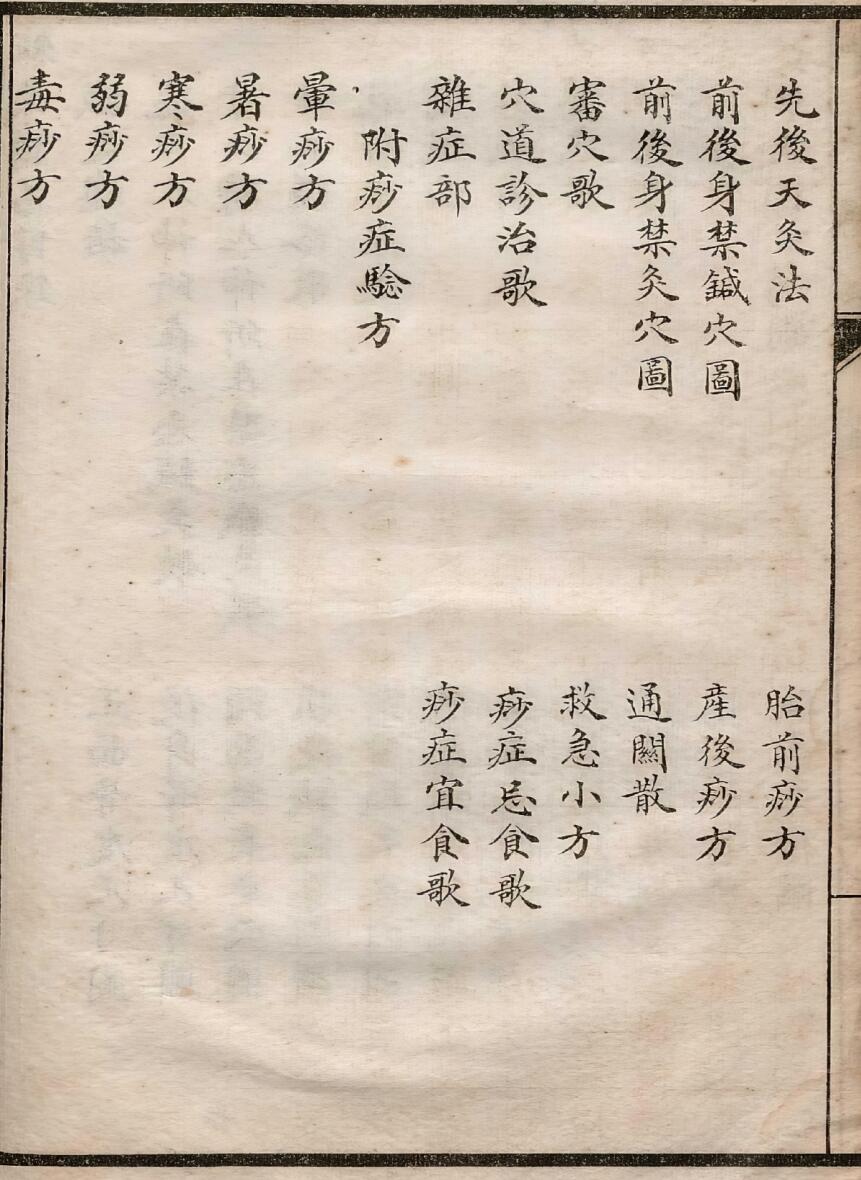 先後天灸法
前後身禁鍼穴圖
前後身禁灸穴圖
審穴歌
穴道診治歌
雜症部
附痧症騐方
暈痧方
暑痧方
寒痧方
弱痧方
毒痧方
胎前痧方
産後痧方
通關散
救急小方
痧症忌食歌
痧症宜食歌